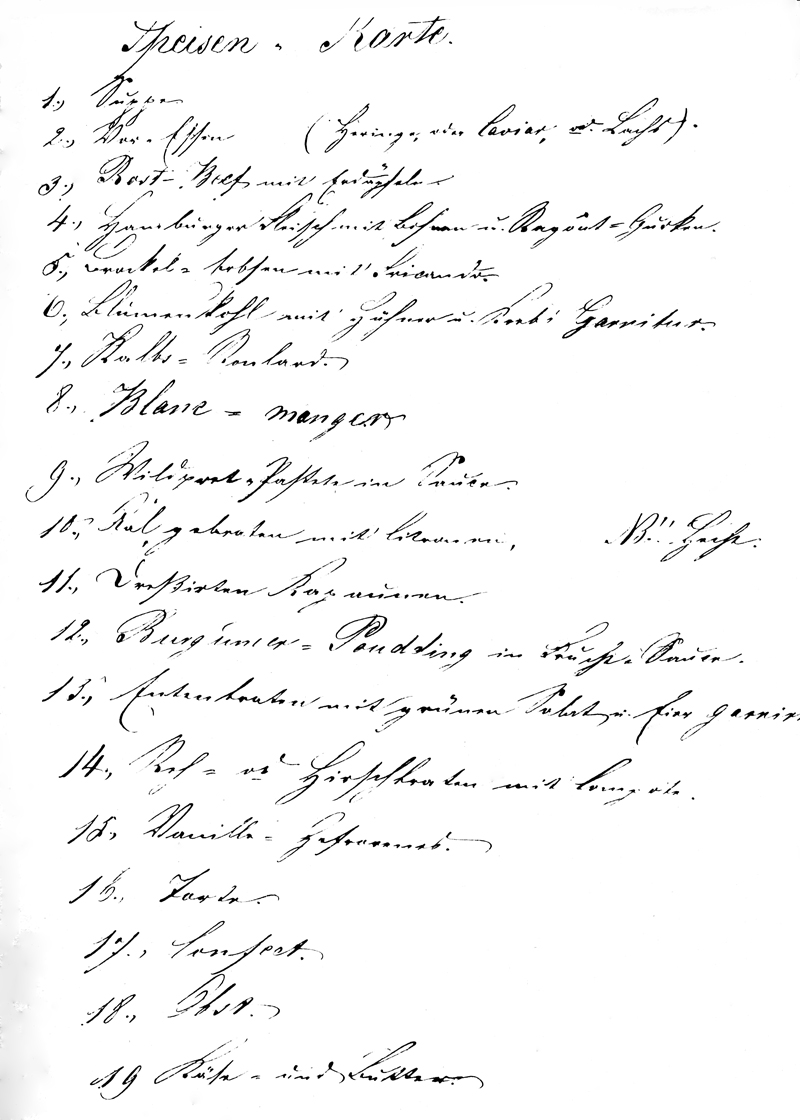 Speisen - Karte.
1., Suppe
2., Vor-Essen (Heringe, oder Caviar, od. Lachs).
3., Rost-Beef mit Erdäpfeln
4., Hamburger Fleisch mit Bohnen u. Ragout-Gurken.
5., Brockel-Erbsen mit Fricando
6., Blumenkohl mit Hühner u. Krebs Garnitur.
7., Kalbs-Roulard.
8., Blanc-manger
9., Wildpret-Pastete in Sauce.
10., Aal, gebraten mit Citronen, NB: Hecht.
11., Dreßirten Kapaunen.
12., Pouding in Frucht-Sauce.
13., Entenbraten mit grünen Salat u. Eier garnirt
14., Reh- od Hirschbraten mit Compote.
15., Vanille-Gefrorenes.
16., Torte.
17., Confect.
18., Obst.
19 Käse- und Butter.